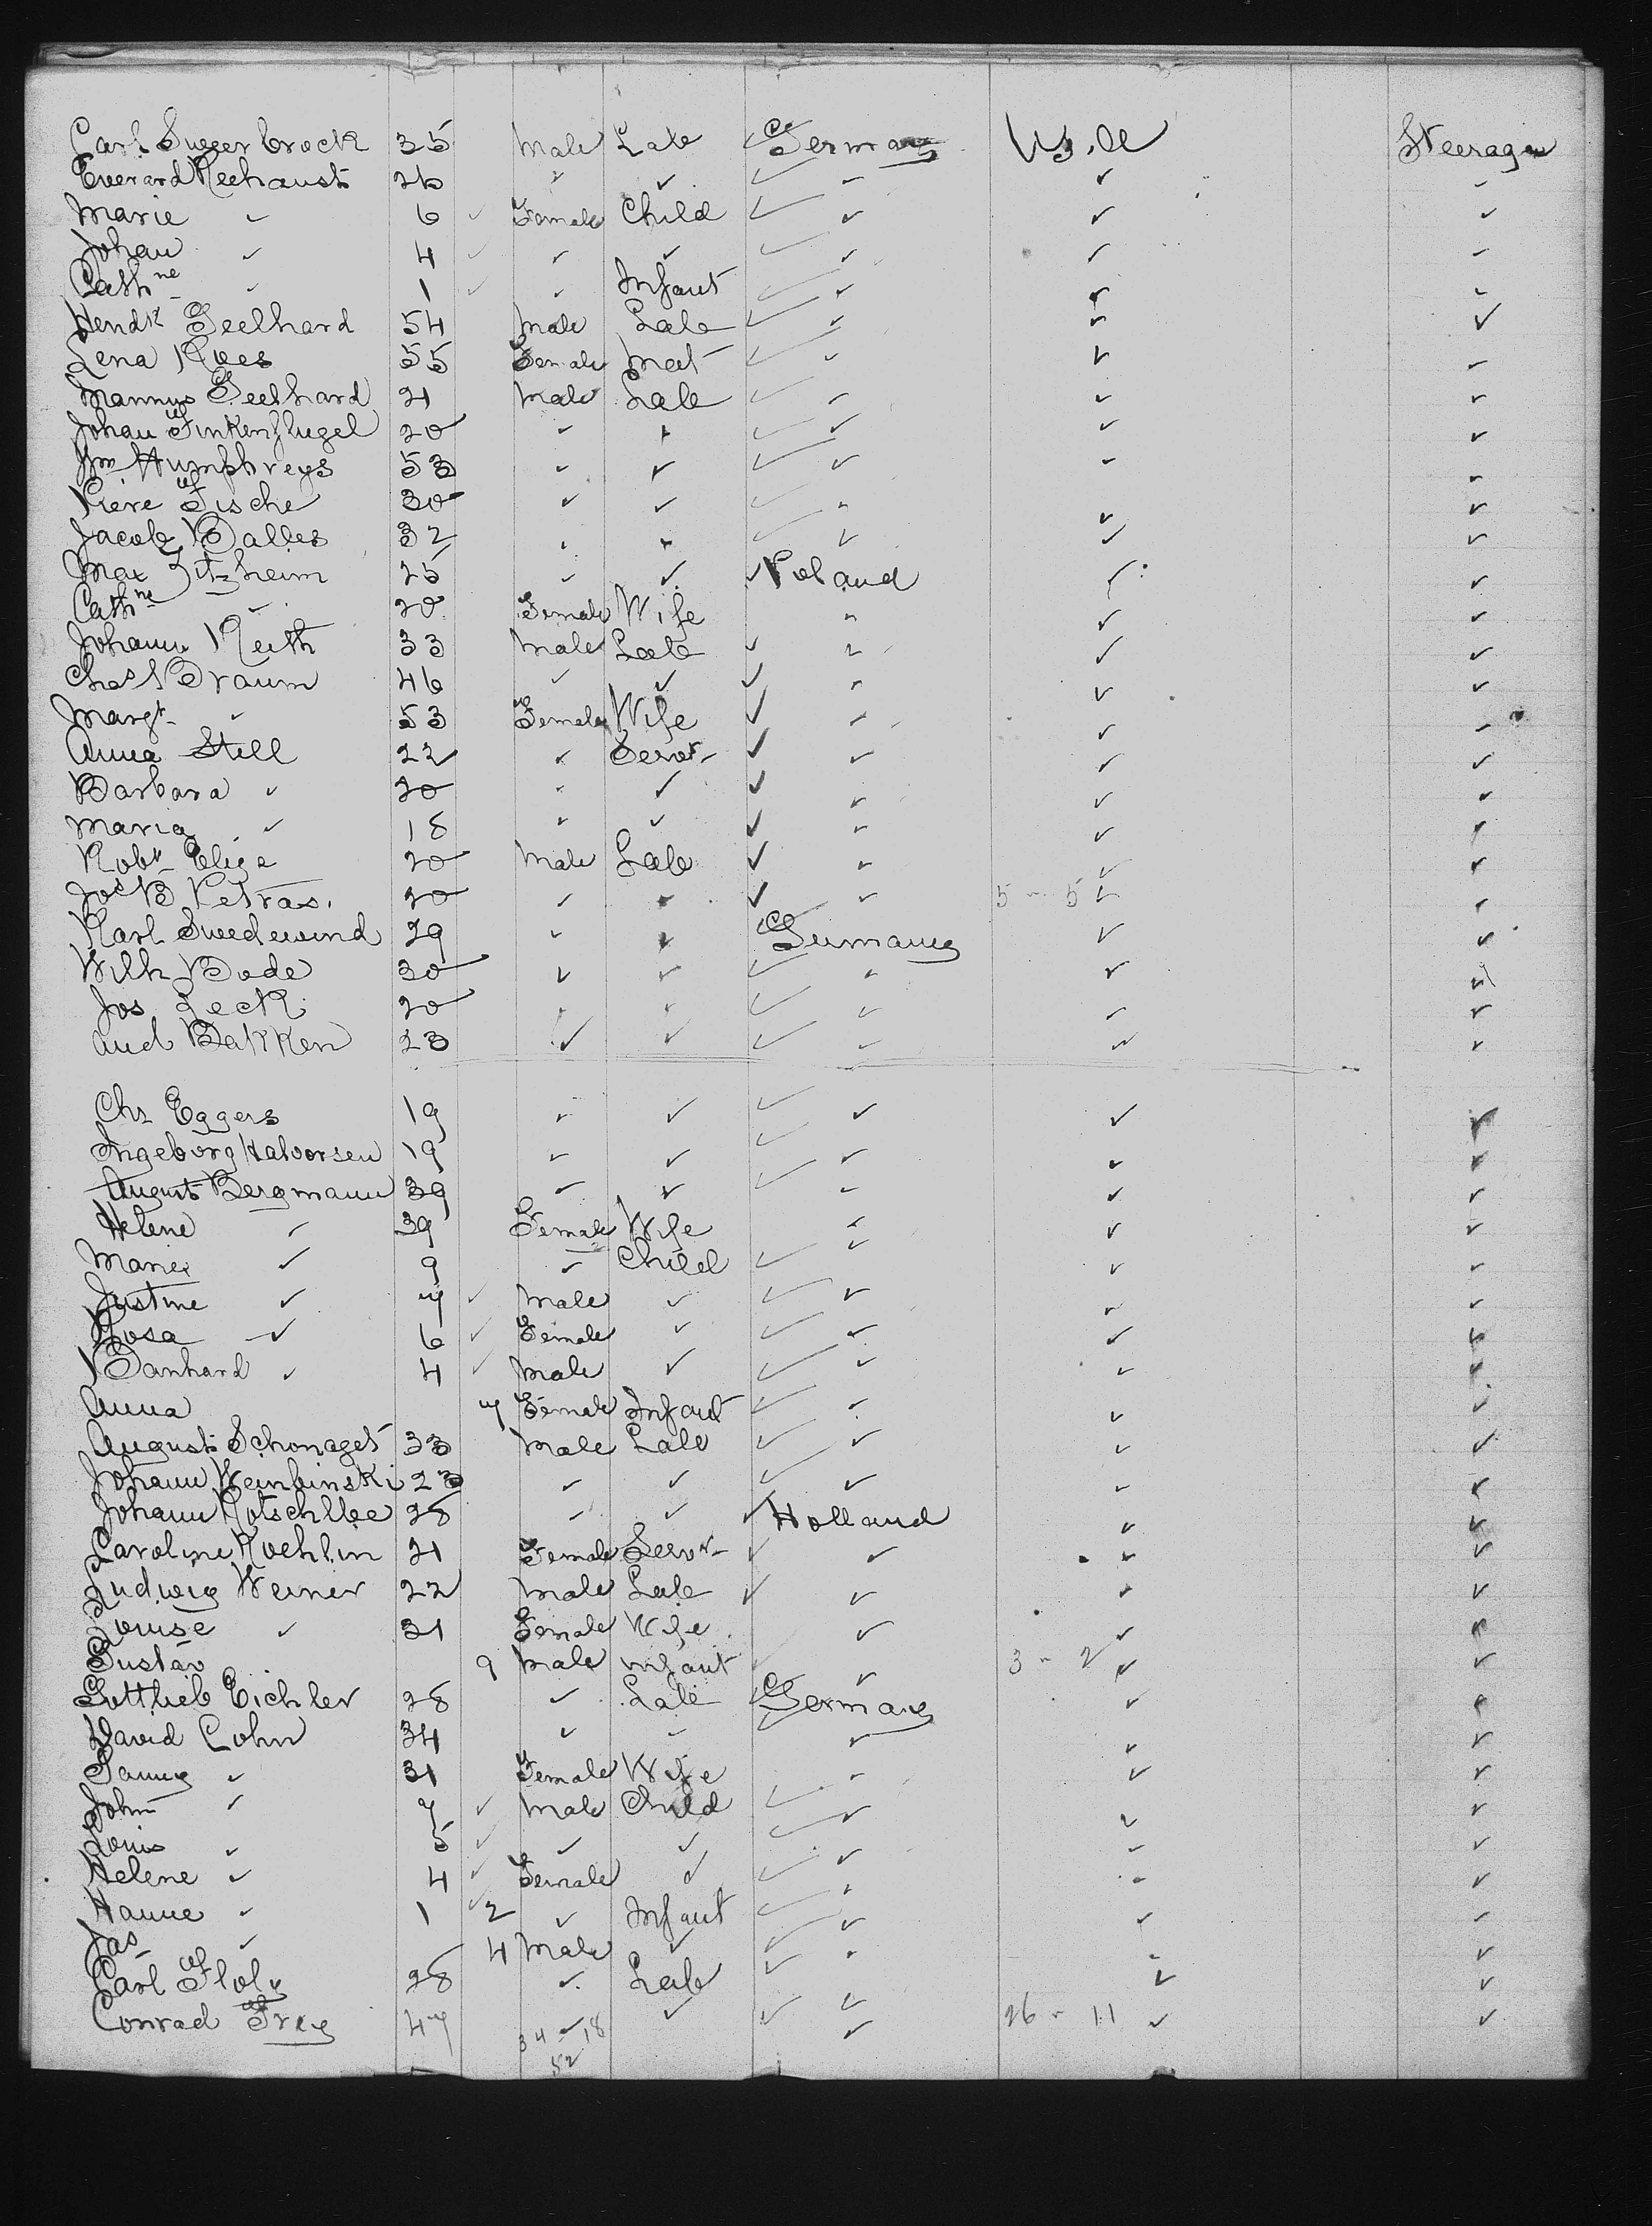 Carl Suverbrock 35 Male Lab Germany U.S.A Steerage
Everard Reehaust 26 ✓ ✓ ✓ ✓ ✓
Marie ✓ 6 ✓ Female Child ✓ ✓ ✓
Johan ✓ 4 ✓ ✓ ✓ ✓ ✓ ✓
Cathne ✓ 1 ✓ ✓ Infant ✓ ✓ ✓
Hendk Geelhard 54 Male Lab ✓ ✓ ✓
Lena Roes 55 Female ✓ ✓ ✓
Mannus Geelhard 21 Male Lab ✓ ✓ ✓
Johan Finkenflugel 20 ✓ ✓ ✓ ✓ ✓
Jm Humphreys 53 ✓ ✓ ✓ ✓ ✓
Piere Fische 30 ✓ ✓ ✓ ✓ ✓
Jacob Balles 32 ✓ ✓ ✓ ✓ ✓
Max Zitzheim 25 ✓ ✓ Poland ✓ ✓
Cathne ✓ 20 Female Wife ✓ ✓ ✓
Johann Reith 33 Male Lab ✓ ✓ ✓
Chas Braum 46 ✓ ✓ ✓ ✓ ✓
Margt ✓ 53 Female Wife ✓ ✓ ✓
Anna Still 22 ✓ Servt ✓ ✓ ✓
Barbara ✓ 20 ✓ ✓ ✓ ✓ ✓
Maria ✓ 18 ✓ ✓ ✓ ✓ ✓
Robt Elige 20 Male Lab ✓ ✓ ✓
Jos B Petras 20 ✓ ✓ ✓ 5 - 5 ✓ ✓
Karl Swedewind 29 ✓ ✓ Germany ✓ ✓
Wilh Bode 30 ✓ ✓ ✓ ✓ ✓
Jos Zeck 20 ✓ ✓ ✓ ✓ ✓
And Bakken 23 ✓ ✓ ✓ ✓ ✓
Chs Eggers 19 ✓ ✓ ✓ ✓ ✓
Ingeborg Halvorsen 19 ✓ ✓ ✓ ✓ ✓
August Bergmann 39 ✓ ✓ ✓ ✓ ✓
Helene ✓ 39 Female Wife ✓ ✓ ✓
Marie ✓ 9 ✓ Child ✓ ✓ ✓
Justine ✓ 7 ✓ Male ✓ ✓ ✓ ✓
Rosa ✓ 6 ✓ Female ✓ ✓ ✓ ✓
Banhard ✓ 4 ✓ Male ✓ ✓ ✓ ✓
Anna 7 Female Infant ✓ ✓ ✓
August Schonaget 33 Male Lab ✓ ✓ ✓
Johann Weinbinski 23 ✓ ✓ ✓ ✓ ✓
Johann Rotschllee 28 ✓ ✓ Holland ✓ ✓
Caroline Koehlin 21 Female Servt ✓ ✓ ✓
Ludwig Weiner 22 Male Lab ✓ ✓ ✓
Louise ✓ 31 Female Wife ✓ ✓ ✓
Gustav 9 Male infant ✓ 3 - 2 ✓ ✓
Gottlieb Eichler 28 ✓ Lab Germany ✓ ✓
David Cohn 34 ✓ ✓ ✓ ✓ ✓
Fanny ✓ 31 Female Wife ✓ ✓ ✓
John ✓ 7 ✓ Male Child ✓ ✓ ✓
Louis ✓ 5 ✓ ✓ ✓ ✓ ✓ ✓
Helene ✓ 4 ✓ Female ✓ ✓ ✓ ✓
Hanne ✓ 1 2 ✓ Infant ✓ ✓ ✓
Jas ✓ 4 Male ✓ ✓ ✓ ✓
Carl Floly 28 ✓ Lab ✓ ✓ ✓
Conrad Frey 47 ✓ ✓ ✓ 26 - 11 ✓ ✓
34 - 18
52